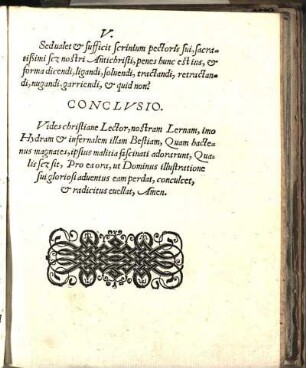 V.
Sedualet & sufficit scrinium pectoris sui, sacra-
tißimi scz nostri Antichristi, penes hunc est ius, &
forma dicendi, ligandi, soluendi, tractandi, retractan-
di, nugandi, garriendi, & quid non?
CONCLVSIO.
Vides christiane Lector, nostram Lernam, imo
Hydram & infernalem illam Bestiam, Quam hacte-
nus magnates, ipsius malitia fascinati adorarunt, Qua-
lis scz sit, Pro exora, ut Dominus illustratione
sui gloriosi aduentus eam perdat, conculcet,
& radicitus euellat, Amen.